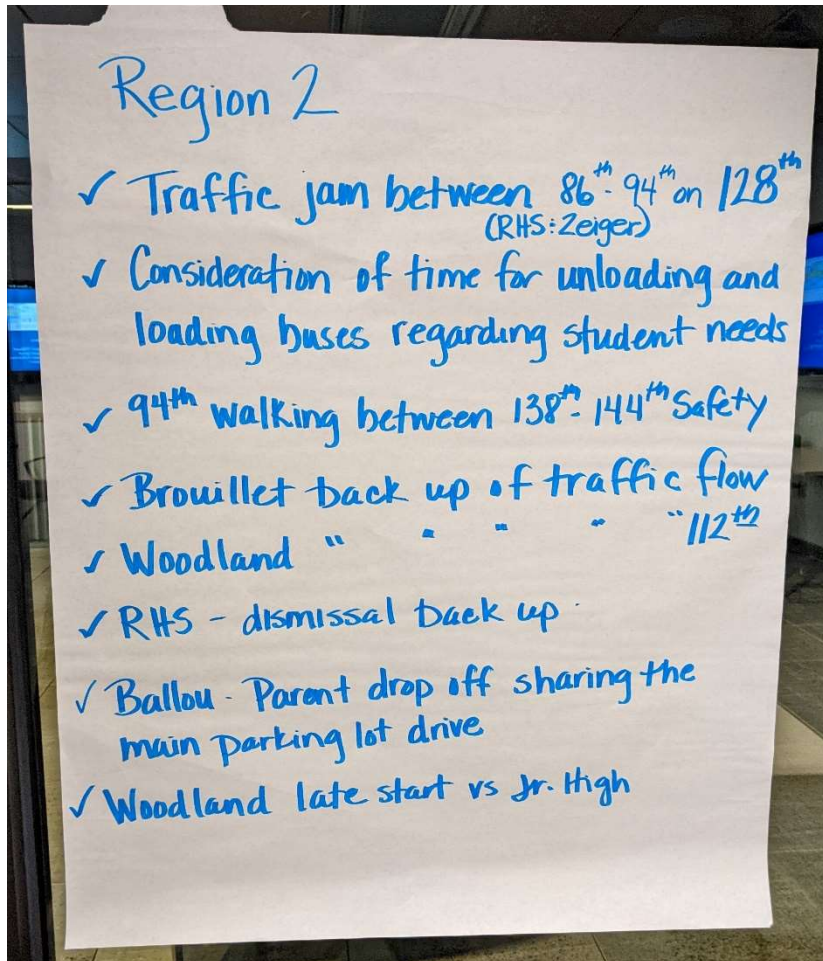 Region 2
✓ Traffic jam between 86th - 94th on 128th
(RHS: Zeiger)
✓ Consideration of time for unloading and
loading buses regarding student needs
✓ 94th walking between 138th - 144th Safety
✓ Brouillet back up of traffic flow
✓ Woodland " " " " " 112th
✓ RHS - dismissal back up
✓ Ballou - Parent drop off sharing the
main parking lot drive
✓ Woodland late start vs Jr. High